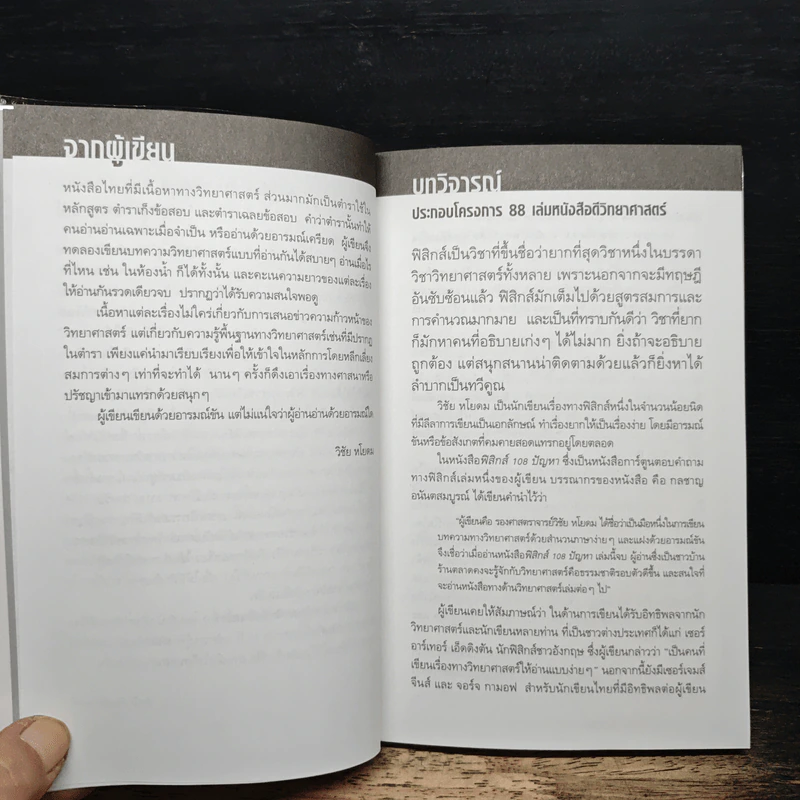 จากผู้เขียน
หนังสือไทยที่มีเนื้อหาทางวิทยาศาสตร์ ส่วนมากมักเป็นตำราใช้ใน
หลักสูตร ตำราเก็งข้อสอบ และตำราเฉลยข้อสอบ คำว่าตำรานั้นทำให้
คนอ่านอ่านเฉพาะเมื่อจำเป็น หรืออ่านด้วยอารมณ์เครียด ผู้เขียนจึง
ทดลองเขียนบทความวิทยาศาสตร์แบบที่อ่านกันได้สบายๆ อ่านเมื่อไร
ที่ไหน เช่น ในห้องน้ำ ก็ได้ทั้งนั้น และคะเนความยาวของแต่ละเรื่อง
ให้อ่านกันรวดเดียวจบ ปรากฏว่าได้รับความสนใจพอดู
เนื้อหาแต่ละเรื่องไม่ใคร่เกี่ยวกับการเสนอข่าวความก้าวหน้าของ
วิทยาศาสตร์ แต่เกี่ยวกับความรู้พื้นฐานทางวิทยาศาสตร์เช่นที่มีปรากฏ
ในตำรา เพียงแค่นำมาเรียบเรียงเพื่อให้เข้าใจในหลักการโดยหลีกเลี่ยง
สมการต่างๆ เท่าที่จะทำได้ นานๆ ครั้งก็ดึงเอาเรื่องทางศาสนาหรือ
ปรัชญาเข้ามาแทรกด้วยสนุกๆ
ผู้เขียนเขียนด้วยอารมณ์ขัน แต่ไม่แน่ใจว่าผู้อ่านอ่านด้วยอารมณ์ใด
วิชัย หโยดม
บทวิจารณ์
ประกอบโครงการ 88 เล่มหนังสือดีวิทยาศาสตร์
ฟิสิกส์เป็นวิชาที่ขึ้นชื่อว่ายากที่สุดวิชาหนึ่งในบรรดา
วิชาวิทยาศาสตร์ทั้งหลาย เพราะนอกจากจะมีทฤษฎี
อันซับซ้อนแล้ว ฟิสิกส์มักเต็มไปด้วยสูตรสมการและ
การคำนวณมากมาย และเป็นที่ทราบกันดีว่า วิชาที่ยาก
ก็มักหาคนที่อธิบายเก่งๆ ได้ไม่มาก ยิ่งถ้าจะอธิบาย
ถูกต้อง แต่สนุกสนานน่าติดตามด้วยแล้วก็ยิ่งหาได้
ลำบากเป็นทวีคูณ
วิชัย หโยดม เป็นนักเขียนเรื่องทางฟิสิกส์หนึ่งในจำนวนน้อยนิด
ที่มีลีลาการเขียนเป็นเอกลักษณ์ ทำเรื่องยากให้เป็นเรื่องง่าย โดยมีอารมณ์
ขันหรือข้อสังเกตที่คมคายสอดแทรกอยู่โดยตลอด
ในหนังสือฟิสิกส์ 108 ปัญหา ซึ่งเป็นหนังสือการ์ตูนตอบคำถาม
ทางฟิสิกส์เล่มหนึ่งของผู้เขียน บรรณากรของหนังสือ คือ กลชาญ
อนันตสมบูรณ์ ได้เขียนคำนำไว้ว่า
"ผู้เขียนคือ รองศาสตราจารย์วิชัย หโยดม ได้ชื่อว่าเป็นมือหนึ่งในการเขียน
บทความทางวิทยาศาสตร์ด้วยสำนวนภาษาง่ายๆ และแฝงด้วยอารมณ์ขัน
จึงเชื่อว่าเมื่ออ่านหนังสือฟิสิกส์ 108 ปัญหา เล่มนี้จบ ผู้อ่านซึ่งเป็นชาวบ้าน
ร้านตลาดคงจะรู้จักกับวิทยาศาสตร์คือธรรมชาติรอบตัวดีขึ้น และสนใจที่
จะอ่านหนังสือทางด้านวิทยาศาสตร์เล่มต่อๆ ไป"
ผู้เขียนเคยให้สัมภาษณ์ว่า ในด้านการเขียนได้รับอิทธิพลจากนัก
วิทยาศาสตร์และนักเขียนหลายท่าน ที่เป็นชาวต่างประเทศก็ได้แก่ เซอร์
อาร์เทอร์ เอ็ดดิงตัน นักฟิสิกส์ชาวอังกฤษ ซึ่งผู้เขียนกล่าวว่า "เป็นคนที่
เขียนเรื่องทางวิทยาศาสตร์ให้อ่านแบบง่ายๆ" นอกจากนี้ยังมีเซอร์เจมส์
จีนส์ และ จอร์จ กามอฟ สำหรับนักเขียนไทยที่มีอิทธิพลต่อผู้เขียน